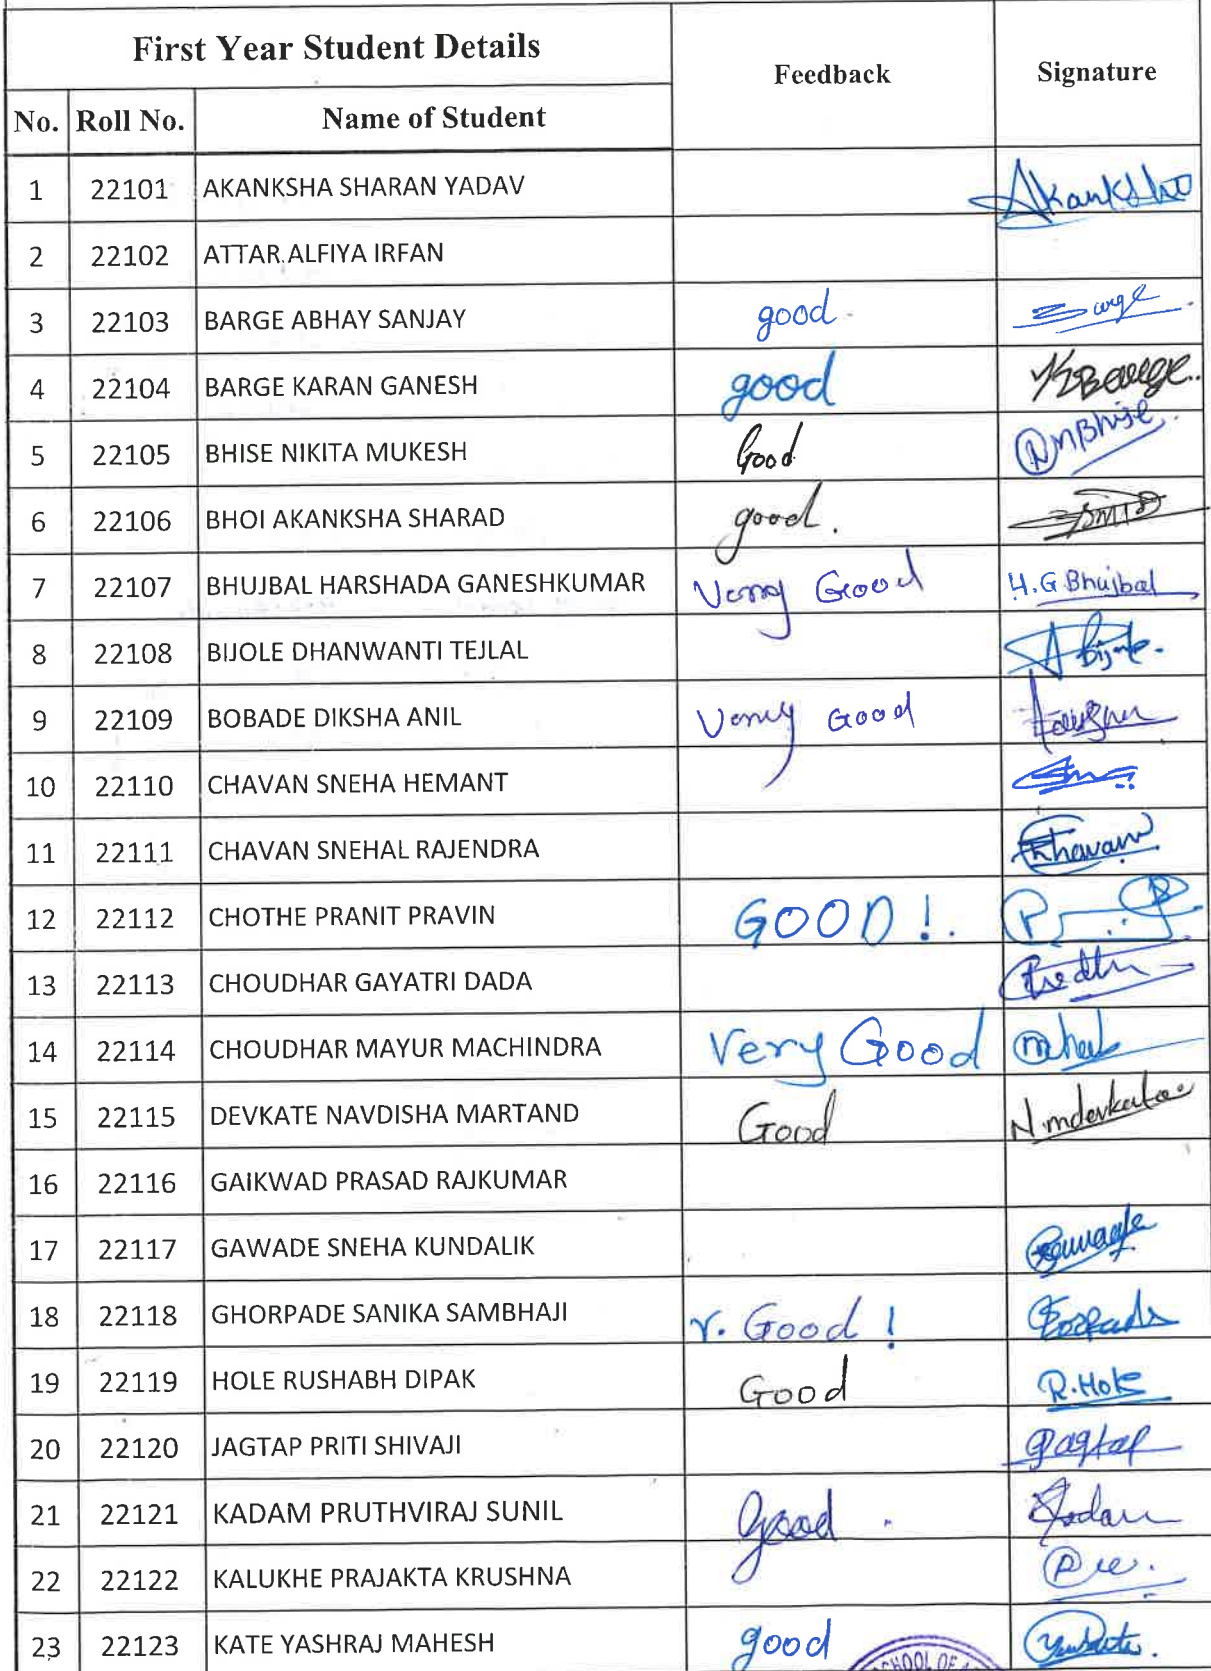 First Year Student Details Feedback Signature
No. Roll No. Name of Student
1 22101 AKANKSHA SHARAN YADAV Akanksha
2 22102 ATTAR ALFIYA IRFAN
3 22103 BARGE ABHAY SANJAY good. Barge
4 22104 BARGE KARAN GANESH good KBarge.
5 22105 BHISE NIKITA MUKESH Good NMBhise.
6 22106 BHOI AKANKSHA SHARAD good.
7 22107 BHUJBAL HARSHADA GANESHKUMAR Very Good H.G.Bhujbal
8 22108 BIJOLE DHANWANTI TEJLAL
9 22109 BOBADE DIKSHA ANIL Very Good
10 22110 CHAVAN SNEHA HEMANT
11 22111 CHAVAN SNEHAL RAJENDRA Chavan
12 22112 CHOTHE PRANIT PRAVIN GOOD !.
13 22113 CHOUDHAR GAYATRI DADA
14 22114 CHOUDHAR MAYUR MACHINDRA Very Good
15 22115 DEVKATE NAVDISHA MARTAND Good N.mdevkate
16 22116 GAIKWAD PRASAD RAJKUMAR
17 22117 GAWADE SNEHA KUNDALIK Gawade
18 22118 GHORPADE SANIKA SAMBHAJI V. Good !
19 22119 HOLE RUSHABH DIPAK Good R.Hole
20 22120 JAGTAP PRITI SHIVAJI Jagtap
21 22121 KADAM PRUTHVIRAJ SUNIL Good . Kadam
22 22122 KALUKHE PRAJAKTA KRUSHNA
23 22123 KATE YASHRAJ MAHESH good
SCHOOL OF